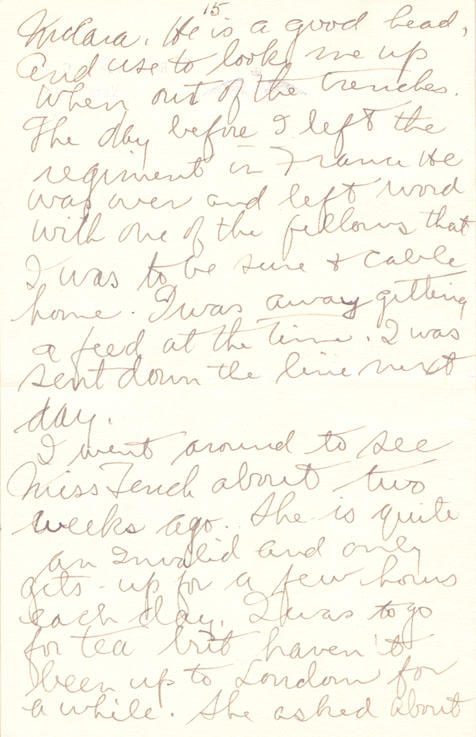 15
McLara. He is a good head,
and use to look me up
when out of the trenches.
The day before I left the
regiment in France He
was over and left word
with one of the fellows that
I was to be sure & cable
home. I was away getting
a feed at the time. I was
sent down the line next
day.
I went around to see
Miss Tench about two
weeks ago. She is quite
an Invalid and only
gets up for a few hours
each day. I was to go
for tea but haven't
been up to London for
a while. She asked about